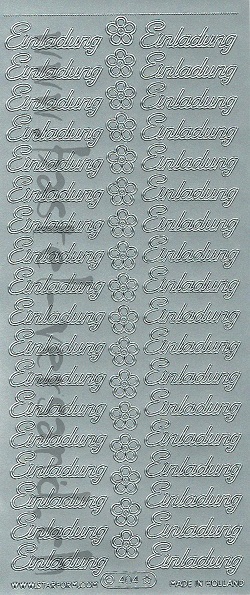 Einladung Einladung
Einladung Einladung
Einladung Einladung
Einladung Einladung
Einladung Einladung
Einladung Einladung
Einladung Einladung
Einladung Einladung
Einladung Einladung
Einladung Einladung
Einladung Einladung
Einladung Einladung
Einladung Einladung
Einladung Einladung
Einladung Einladung
Einladung Einladung
Einladung Einladung
Einladung Einladung
WWW.STARFORM.COM MADE IN HOLLAND